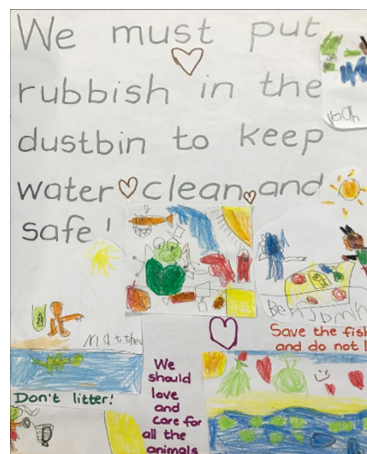 We must put
rubbish in the
dustbin to keep
water clean and
safe!
Save the fish
and do not
Don't litter!
We
should
love
and
care for
all the
animals